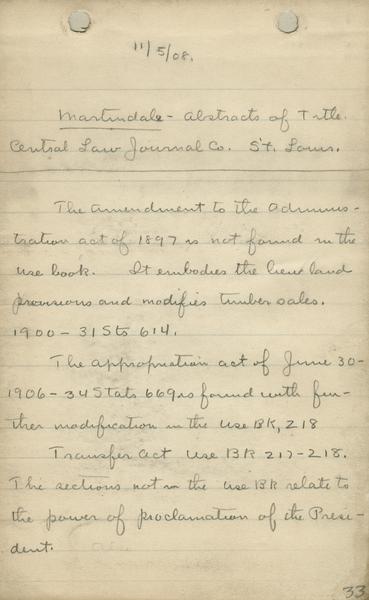 11/5/08.
Martindale - Abstracts of Title.
Central Law Journal Co. St. Louis.
The amendment to the Adminis-
tration act of 1897 is not found in the
use book. It embodies the lieu land
provisions and modifies timber sales.
1900 - 31 Sts 614.
The appropriation act of June 30-
1906 - 34 Stats 669 is found with fur-
ther modification in the Use BK, 218
Transfer Act Use BK 217-218.
The sections not in the Use BK relate to
the power of proclamation of the Presi-
dent.
33